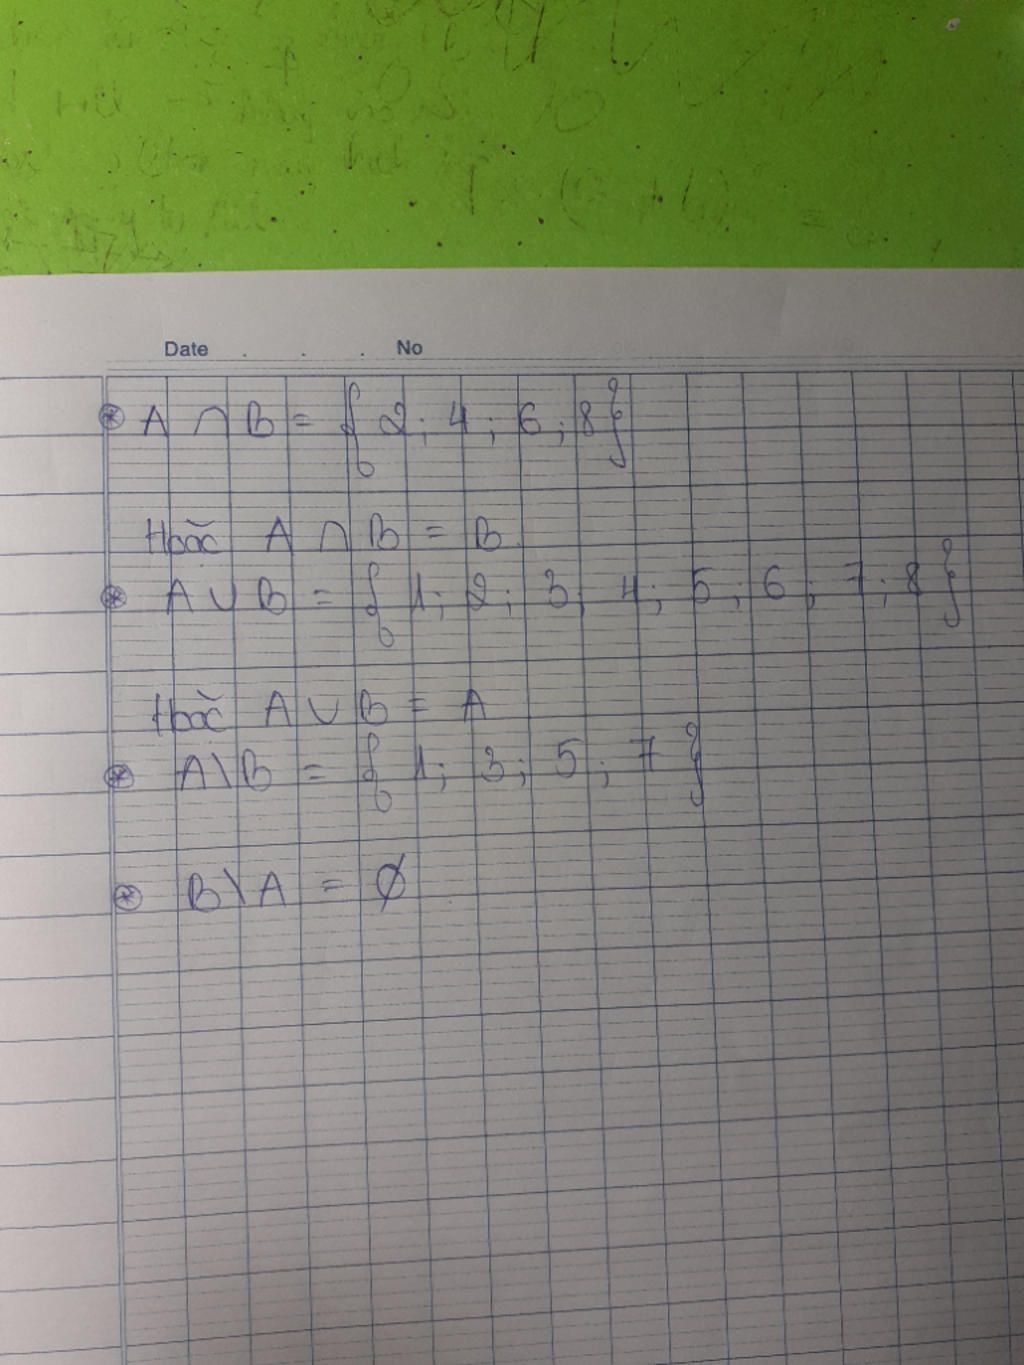 Date . . . No
⊛ A ∩ B = { 2 ; 4 ; 6 ; 8 }
Hoặc A ∩ B = B
⊛ A ∪ B = { 1 ; 2 ; 3 ; 4 ; 5 ; 6 ; 7 ; 8 }
Hoặc A ∪ B = A
⊛ A \ B = { 1 ; 3 ; 5 ; 7 }
⊛ B \ A = ∅